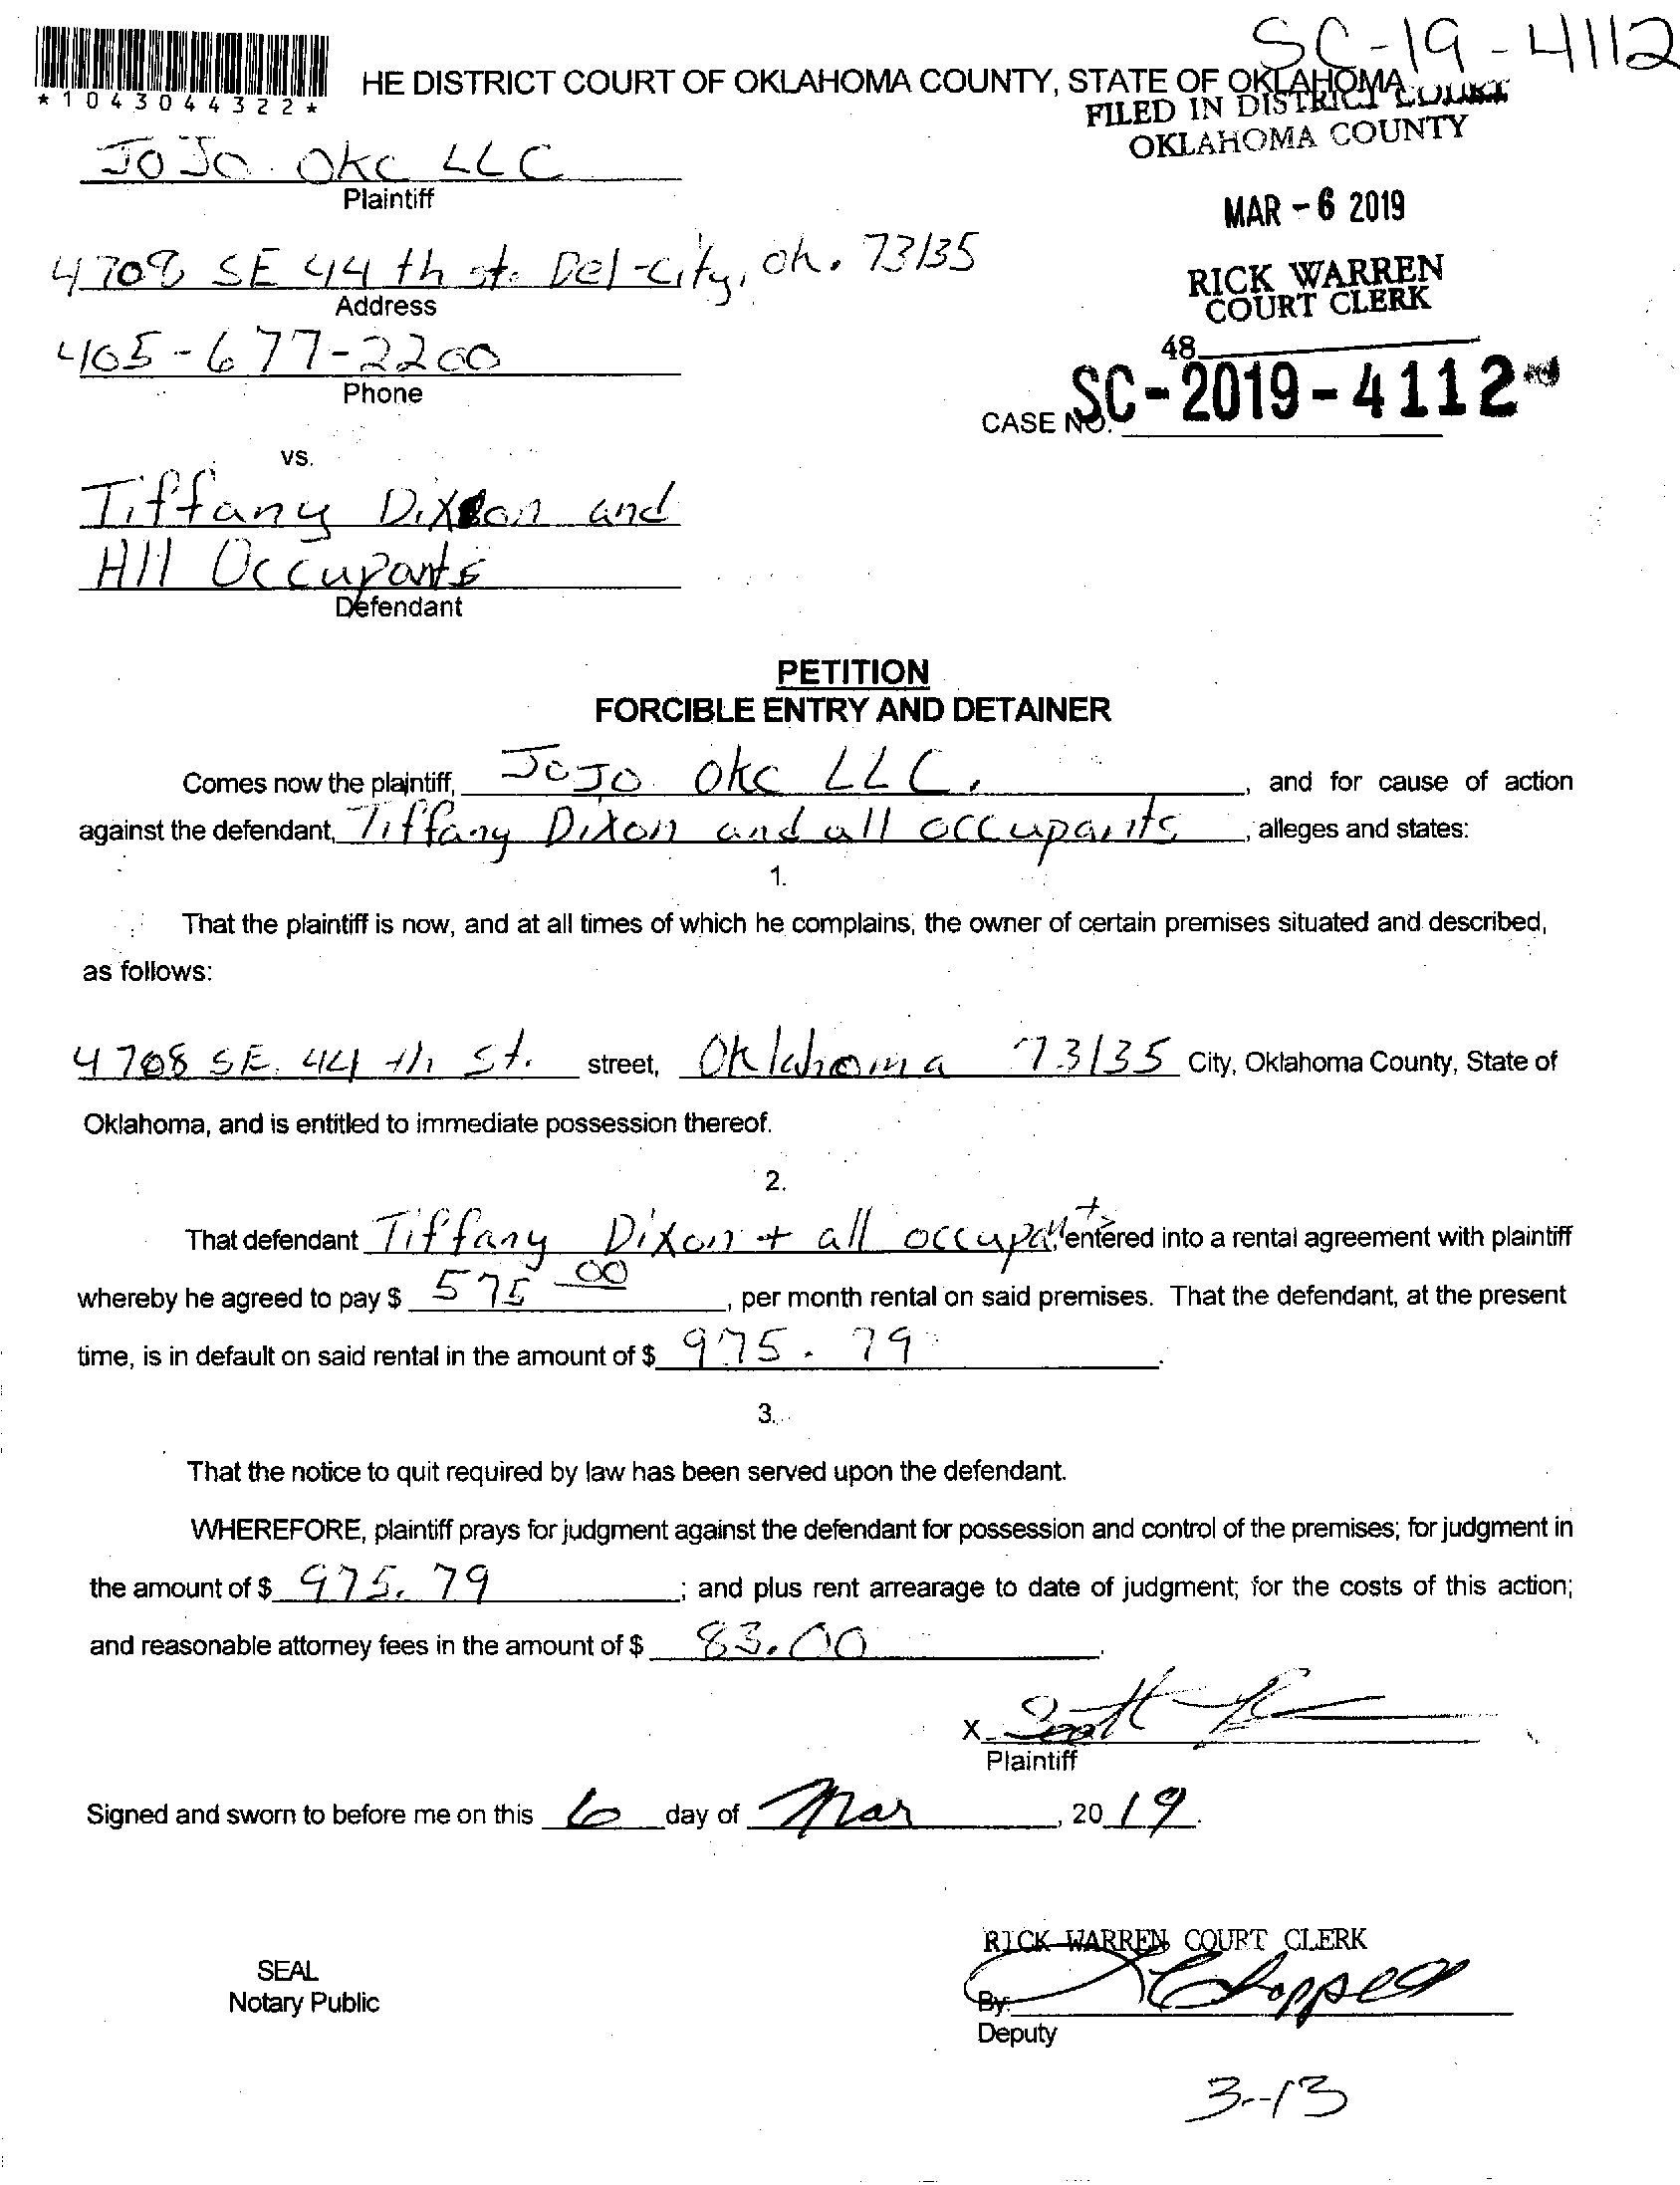 SC-19-4112
*1043044322*
HE DISTRICT COURT OF OKLAHOMA COUNTY, STATE OF OKLAHOMA
FILED IN DISTRICT COURT
OKLAHOMA COUNTY
JoJo OKC LLC
Plaintiff
MAR - 6 2019
4708 SE 44th st. Del-City, Ok. 73135
Address
RICK WARREN
COURT CLERK
405-677-2200
Phone
48
CASE NO. SC-2019-4112
vs.
Tiffany Dixon and
All Occupants
Defendant
PETITION
FORCIBLE ENTRY AND DETAINER
Comes now the plaintiff, JoJo OKC LLC, , and for cause of action
against the defendant, Tiffany Dixon and all occupants, alleges and states:
1.
That the plaintiff is now, and at all times of which he complains, the owner of certain premises situated and described,
as follows:
4708 SE. 44 th St. street, Oklahoma 73135 City, Oklahoma County, State of
Oklahoma, and is entitled to immediate possession thereof.
2.
That defendant Tiffany Dixon + all occupant entered into a rental agreement with plaintiff
whereby he agreed to pay $ 575 00, per month rental on said premises. That the defendant, at the present
time, is in default on said rental in the amount of $ 975.79.
3.
That the notice to quit required by law has been served upon the defendant.
WHEREFORE, plaintiff prays for judgment against the defendant for possession and control of the premises; for judgment in
the amount of $ 975.79; and plus rent arrearage to date of judgment; for the costs of this action;
and reasonable attorney fees in the amount of $ 83.00.
X Scott
Plaintiff
Signed and sworn to before me on this 6 day of Mar, 2019.
RICK WARREN COURT CLERK
SEAL
Notary Public
By:
Deputy
3-13